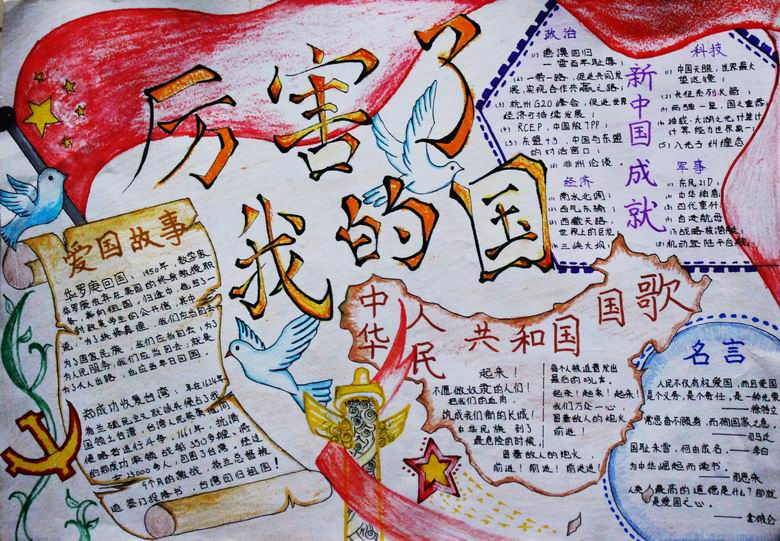 厉害了
我的国
爱国故事
华罗庚回国：1950年，数学家
华罗庚放弃在美国的终身教授职
务，奔向祖国。归途中，他写了一
封致留美学生的公开信，其中
说："为了抉择真理，我们应当回去；
为了国家民族，我们应当回去；为了
为人民服务，我们应当回去；就是
为了个人出路，也应当早日回国
郑成功收复台湾
我国领土台湾，台湾人民
侵略者进行斗争，1661年，
的郑成功率领战船350多艘，将
士25000多人，到了台湾，经过
9个月的激战，荷兰总督被
迫签订投降书，台湾回归祖国！
新中国成就
政治
(1) 港澳回归
一雪百年耻辱；
(2) 一带一路，促进共同发
展，实现合作共赢之路；
(3) 杭州G20峰会，促进世界
经济可持续发展；
(4) RCEP，中国版TPP；
(5) 东盟+3，中国与东盟
的对话窗口；
(6) 非洲论谈．
经济
(1) 南水北调；
(2) 西气东输；
(3) 西藏天路，
世界上的巨龙
(4) 三峡大坝；
科技
(1) 中国天眼，世界最大
望远镜；
(2) 长征系列火箭；
(3) 两弹一星，国之重器；
(4) 神威·太湖之光计算计
计算能力世界第一；
(5) 八光子纠缠态
军事
(1) 东风21D；
(2) 中华神盾；
(3) 四代重歼；
(4) 自造航母；
(5) 战略核潜艇；
(6) 机动登陆平台
中华人民共和国国歌
起来！
不愿做奴隶的人们！
把我们的血肉，
筑成我们新的长城！
中华民族到了
最危险的时候，
每个人被迫着发出
最后的吼声。
起来！起来！起来！
我们万众一心
冒着敌人的炮火
前进！
冒着敌人的炮火
前进！前进！前进进！
名言
人民不仅有权爱国，而且爱国
是个义务，是个责任，是一种光荣
——徐特立
常思奋不顾身，而殉国家之急。
——司马迁
国耻未雪，何由成名。——李白
为中华崛起而读书。
——周恩来
人类最高的道德是什么？那就
是爱国之心。